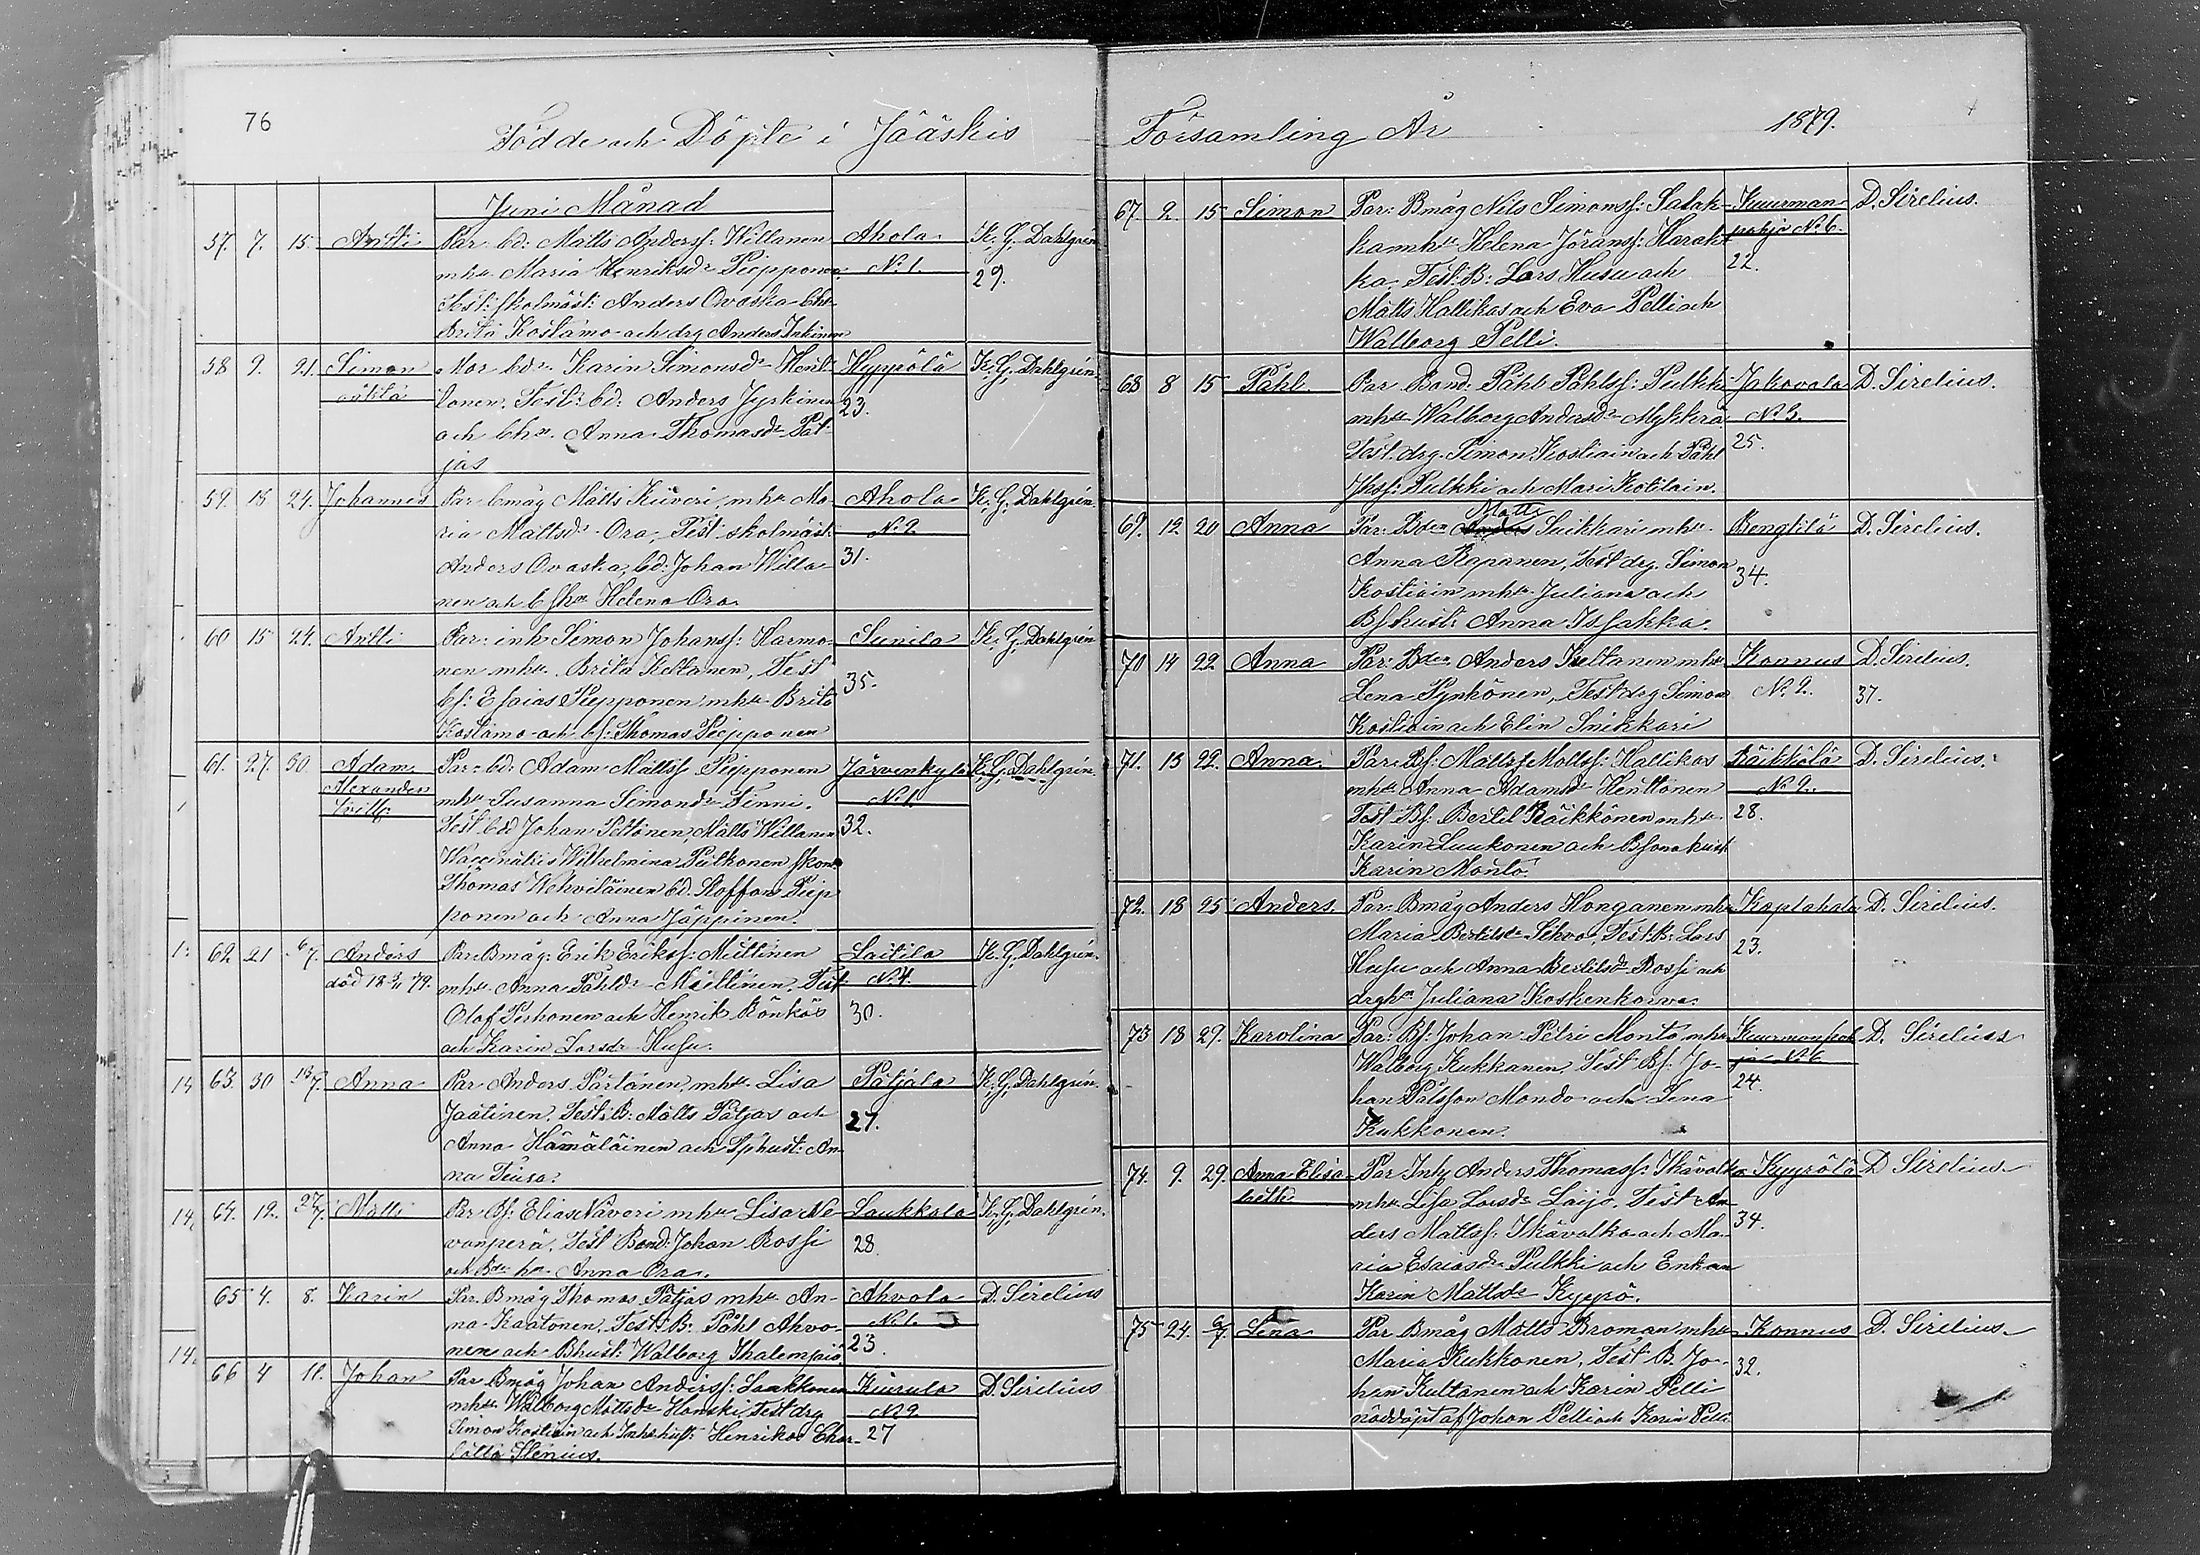 76
Födde och Döpte i Jääskis
Juni Månad
57. 7. 15. Antti
Par. bd: Matts Anderss: Willanen
mhu Maria Henriksdr Piepponen
Test: skolmäst: Anders Ovaska bhu
Brita Kostamo och drg Anders Inkinen
Ahola
No 1.
K. G. Dahlgren
29.
58 9. 21. Simon
oäkta
Mor bdr. Karin Simonsdr Hent-
lonen. Test: bd: Anders Jyrkinen
och bhu. Anna Thomasdr Pät-
jas
Hyppölä
23.
K. G. Dahlgrén
59. 15 24. Johannes
Par. bmåg Matts Kiiveri, mhu Ma-
ria Mattsdr Ora, Test skolmäst:
Anders Ovaska, bd: Johan Willa-
nen och bshu Helena Ora.
Ahola
No 2
31.
K. G. Dahlgrén.
60 15 24. Antti
Par: inh Simon Johanss: Harmo-
nen mhu. Brita Keltanen, Test
bs: Esaias Piepponen mhu Brita
Kostamo och bs: Thomas Piepponen
Sunila
35.
K. G. Dahlgrén
61. 27. 30. Adam
Alexander
Par: bd: Adam Mattss Piepponen
mhu Susanna Simonsdr Finni.
Test. bd Johan Peltonen, Matts Willanen
Waccinatris Wilhelmina Pulkonen skom
Thomas Wehviläinen bd. Stoffan Piep
ponen och Anna Jäppinen.
Järvenkylä
No 1
32.
K. G. Dahlgrén.
62 21 6/7. Anders
död 18 3/11 79.
Par. Bmåg: Erik Eriks: Miettinen
mhu Anna Påhlsdr Miettinen, Test:
Olof Peshonen och Henrik Rönkös
och Karin Larsdr Husu.
Laitila
No 4.
30.
K. G. Dahlgrén.
63. 30 13/7. Anna
Par Anders Partanen, mhu Lisa
Jaatinen. Test: B: Matts Pätjas och
Anna Hämäläinen och Sphust: An
na Teusa.
Pätjälä
27.
K. G. Dahlgrén.
64. 12. 27/7. Matti
Par. Bs: Elias Näveri mhu Lisa Ne-
vanperä, Test Bond: Johan Rossi
och Bdr hu Anna Ora.
Laukkala
28
K. G. Dahlgrén.
65 4. 8. Karin
Par. Bmåg Thomas Pätjas mhu An-
na Kaatonen. Test: B: Påhl Ahvo-
nen och Bhust: Walborg Ihalempiä
Ahvola
No 1.
23
D. Sirelius
66 4 11. Johan
Par Bmåg Johan Anderss: Laukkonen
mhu Walborg Mattsdr Hanski Test drg
Simon Kostiain och Inhshust: Henrika Char-
lotta Stenius.
Kiurula
No 2
27
D. Sirelius
Församling År 1879.
67. 2. 15 Simon
Par: Bmåg Nils Simonss: Salak-
kamhu Helena Jöranss: Harak
ka. Test: B: Lars Husu och
Matts Hallikas och Eva Pelli och
Walborg Pelli.
Kuurman
pohja No 6.
22.
D. Sirelius.
68 8 15 Påhl
Par Bond. Påhl Påhlss: Pulkki
mhu Walborg Andersdr Mykkrä
Test. drg. Simon Kostiain och Påhl
Jhss: Pulkki och Mari Kotilain.
Jakovala
No 3.
25.
D. Sirelius.
69. 12 20 Anna
Par: Bden Matts Suikkari mhu
Anna Reponen, Test drg. Simon
Kostiain mhu Juliana och
Bshust: Anna Issakka.
Bengtilä
34.
D. Sirelius.
70 14 22 Anna
Par: Bden Anders Kultanen mhu
Lena Pynhönen, Test drg Simon
Kostiain och Elin Snikkari
Konnus
No 2.
D. Sirelius.
37.
71. 15 22. Anna.
Par. Bs: Matts Mattss: Hallikas
mhu Anna Adamsdr Henttonen
Test: Bs: Bertil Räikkönen mhu
Karin Luukonen och Bsonahust
Karin Monto
Räikkölä
No 2.
28.
D. Sirelius.
72. 18 25 Anders.
Par. Bmåg Anders Honganen mhu
Maria Bertilsdr Sihvo, Test: B: Lars
Husu och Anna Bertilsdr Rossi och
drghu Juliana Koskenkorva.
Koplahala
23.
D. Sirelius.
73 18 29. Karolina
Par: Bs: Johan Petri Monto mhu
Walborg Kukkanen Test Bs: Jo-
han Pålsson Mondo och Lena
Kukkonen.
Kuurmanpoh
ja No 6
24.
D. Sirelius
74. 9. 29. Anna Elisa-
beth
Par Inh Anders Thomass: Ikävalko
mhu Lisa Larsdr Laijo. Test An
ders Mattss: Ikävalko och Ma-
ria Esaiasdr Pulkki och Enkan
Karin Mattsdr Kyyrö.
Kyyrölä
34.
D Sirelius
75 24. 6/7. Lena
Par Bmåg Matts Broman mhu
Maria Kukkonen, Test: B. Jo-
han Kultanen och Karin Pelli
nöddöpt af Johan Pelli och Karin Pelli
Konnus
32.
D. Sirelius